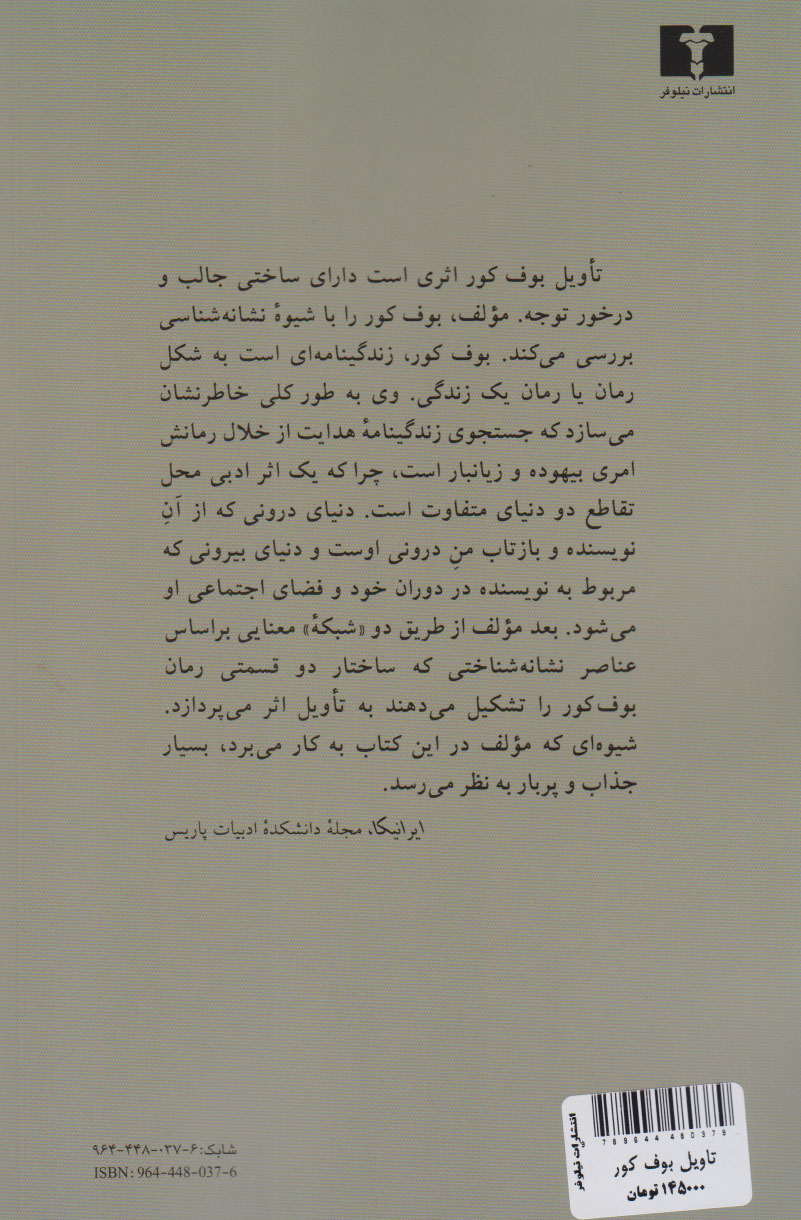 انتشارات نیلوفر
تأویل بوف کور اثری است دارای ساختی جالب و
درخور توجه. مؤلف، بوف کور را با شیوهٔ نشانه‌شناسی
بررسی می‌کند. بوف کور، زندگینامه‌ای است به شکل
رمان یا رمان یک زندگی. وی به طور کلی خاطرنشان
می‌سازد که جستجوی زندگینامهٔ هدایت از خلال رمانش
امری بیهوده و زیانبار است، چرا که یک اثر ادبی محل
تقاطع دو دنیای متفاوت است. دنیای درونی که از آنِ
نویسنده و بازتاب منِ درونی اوست و دنیای بیرونی که
مربوط به نویسنده در دوران خود و فضای اجتماعی او
می‌شود. بعد مؤلف از طریق دو «شبکهٔ» معنایی براساس
عناصر نشانه‌شناختی که ساختار دو قسمتی رمان
بوف‌کور را تشکیل می‌دهند به تأویل اثر می‌پردازد.
شیوه‌ای که مؤلف در این کتاب به کار می‌برد، بسیار
جذاب و پربار به نظر می‌رسد.
ایرانیکا، مجلهٔ دانشکدهٔ ادبیات پاریس
شابک: ۶-۰۳۷-۴۴۸-۹۶۴
ISBN: 964-448-037-6
انتشارات نیلوفر
9 789644 480379
تاویل بوف کور
۱۴۵۰۰۰ تومان